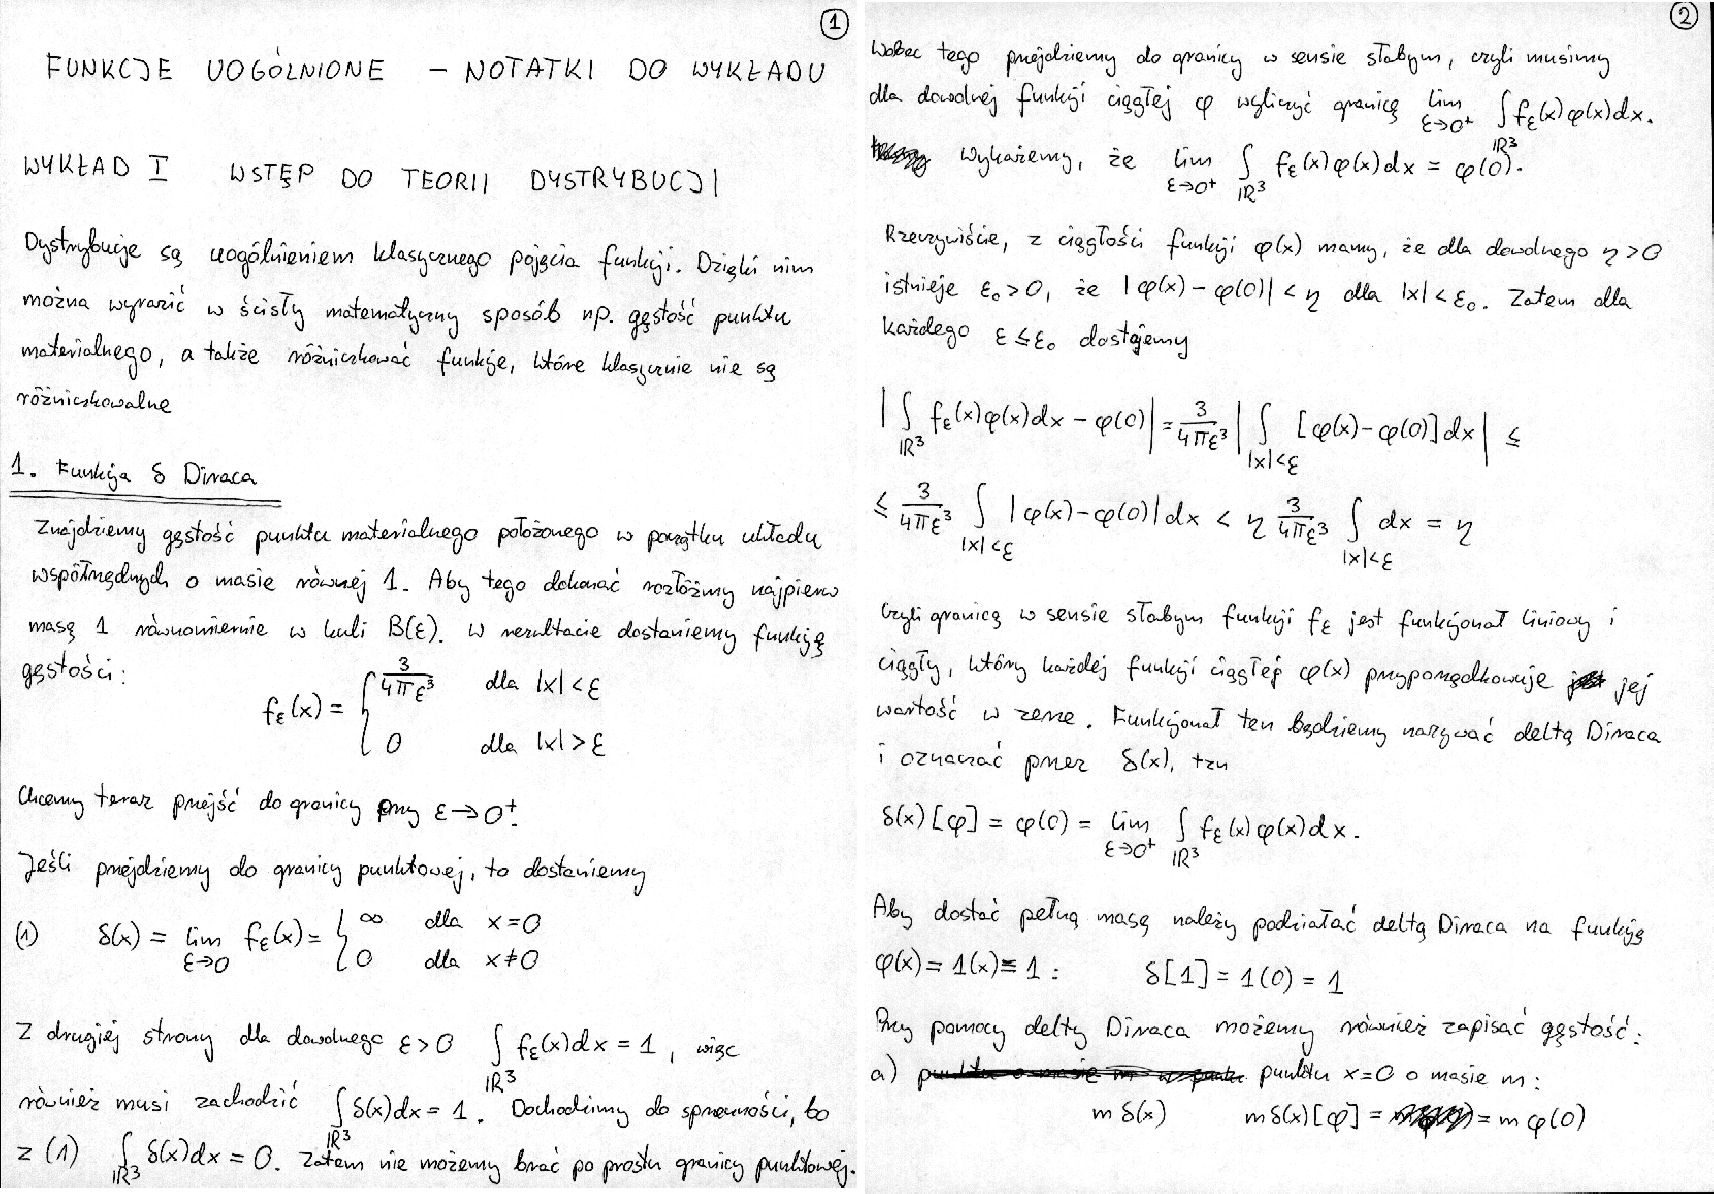 1
FUNKCJE UOGÓLNIONE – NOTATKI DO WYKŁADU
WYKŁAD I WSTĘP DO TEORII DYSTRYBUCJI
Dystrybucje są uogólnieniem klasycznego pojęcia funkcji. Dzięki nim
można wyrazić w ścisły matematyczny sposób np. gęstość punktu
materialnego, a także różniczkować funkcje, które klasycznie nie są
różniczkowalne
1. Funkcja δ Diraca
Znajdziemy gęstość punktu materialnego położonego w początku układu
współrzędnych o masie równej 1. Aby tego dokonać rozłóżmy najpierw
masę 1 równomiernie w kuli B(ε). W rezultacie dostaniemy funkcję
gęstości:
f_ε(x) = { 3/(4πε³) dla |x| < ε
0 dla |x| > ε
Chcemy teraz przejść do granicy przy ε → 0⁺.
Jeśli przejdziemy do granicy punktowej, to dostaniemy
(1) δ(x) = lim_{ε→0} f_ε(x) = { ∞ dla x = 0
0 dla x ≠ 0
Z drugiej strony dla dowolnego ε > 0 ∫_{ℝ³} f_ε(x)dx = 1, więc
również musi zachodzić ∫_{ℝ³} δ(x)dx = 1. Dochodzimy do sprzeczności, bo
z (1) ∫_{ℝ³} δ(x)dx = 0. Zatem nie możemy brać po prostu granicy punktowej.
2
Wobec tego przejdziemy do granicy w sensie słabym, czyli musimy
dla dowolnej funkcji ciągłej φ wyliczyć granicę lim_{ε→0⁺} ∫_{ℝ³} f_ε(x)φ(x)dx.
Wykażemy, że lim_{ε→0⁺} ∫_{ℝ³} f_ε(x)φ(x)dx = φ(0).
Rzeczywiście, z ciągłości funkcji φ(x) mamy, że dla dowolnego η > 0
istnieje ε₀ > 0, że |φ(x) − φ(0)| < η dla |x| < ε₀. Zatem dla
każdego ε ≤ ε₀ dostajemy
|∫_{ℝ³} f_ε(x)φ(x)dx − φ(0)| = 3/(4πε³) |∫_{|x|<ε} [φ(x)−φ(0)]dx| ≤
≤ 3/(4πε³) ∫_{|x|<ε} |φ(x)−φ(0)|dx < η 3/(4πε³) ∫_{|x|<ε} dx = η
Czyli granicą w sensie słabym funkcji f_ε jest funkcjonał liniowy i
ciągły, który każdej funkcji ciągłej φ(x) przyporządkowuje jej
wartość w zerze. Funkcjonał ten będziemy nazywać deltą Diraca
i oznaczać przez δ(x), tzn
δ(x)[φ] = φ(0) = lim_{ε→0⁺} ∫_{ℝ³} f_ε(x)φ(x)dx.
Aby dostać pełną masę należy podziałać deltą Diraca na funkcję
φ(x) = 1(x) ≡ 1 : δ[1] = 1(0) = 1
Przy pomocy delty Diraca możemy również zapisać gęstość:
a) punktu x=0 o masie m:
m δ(x) m δ(x)[φ] = = m φ(0)